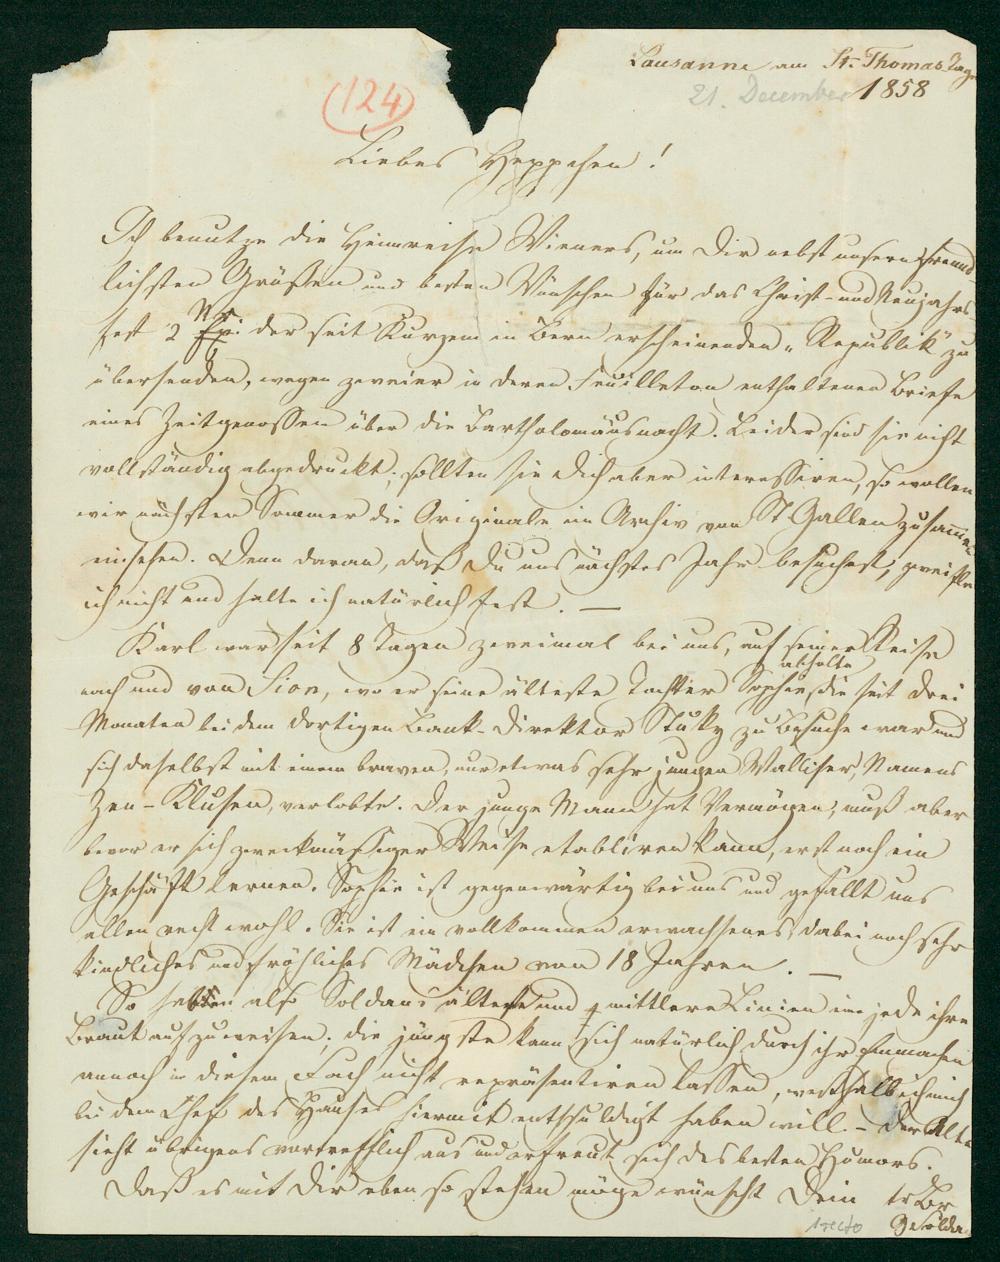 Lausanne am St. Thomas Tag
21. December 1858
(124)
Liebes Heppchen!
Ich benutze die Heimreise Wieners, um Dir nebst unsern freund-
lichsten Grüßen und besten Wünschen für das Christ- und Neujahrs
fest 2 Nr: der seit Kurzem in Bern erscheinenden „Republik" zu
übersenden, wegen zweier in deren Feuilleton enthaltenen Briefe
eines Zeitgenossen über die Bartholomäusnacht. Leider sind sie nicht
vollständig abgedruckt; sollten sie Dich aber interessiren, so wollen
wir nächsten Sommer die Originale im Archiv von St Gallen zusammen
einsehen. Denn daran, daß Du uns nächstes Jahr besuchest, zweifle
ich nicht und halte ich natürlich fest. —
Karl war seit 8 Tagen zweimal bei uns, auf seiner Reise
nach und von Sion, wo er seine älteste Tochter Sophie abholte, die seit drei
Monaten bei dem dortigen Bank-Direktor Stuky zu Besuche war und
sich daselbst mit einem braven, nur etwas sehr jungen Walliser, Namens
Zen-Klusen, verlobte. Der junge Mann hat Vermögen, muß aber
bevor er sich zweckmäßiger Weise etabliren kann, erst noch ein
Geschäft lernen. Sophie ist gegenwärtig bei uns und gefällt uns
allen recht wohl. Sie ist ein vollkommen erwachsenes, dabei noch sehr
kindliches und fröhliches Mädchen von 18 Jahren. —
So haben also Soldans ältere und mittlere Linien eine jede ihre
Braut aufzuweisen; die jüngste kann sich natürlich durch ihr Emmachen
annoch in diesem Fach nicht repräsentiren lassen, weshalb ich mich
bei dem Chef des Hauses hiermit entschuldigt haben will. – Der Alte
sieht übrigens vortrefflich aus und erfreut sich des besten Humors.
Daß es mit Dir eben so stehen möge wünscht Dein tr Br
1 recto